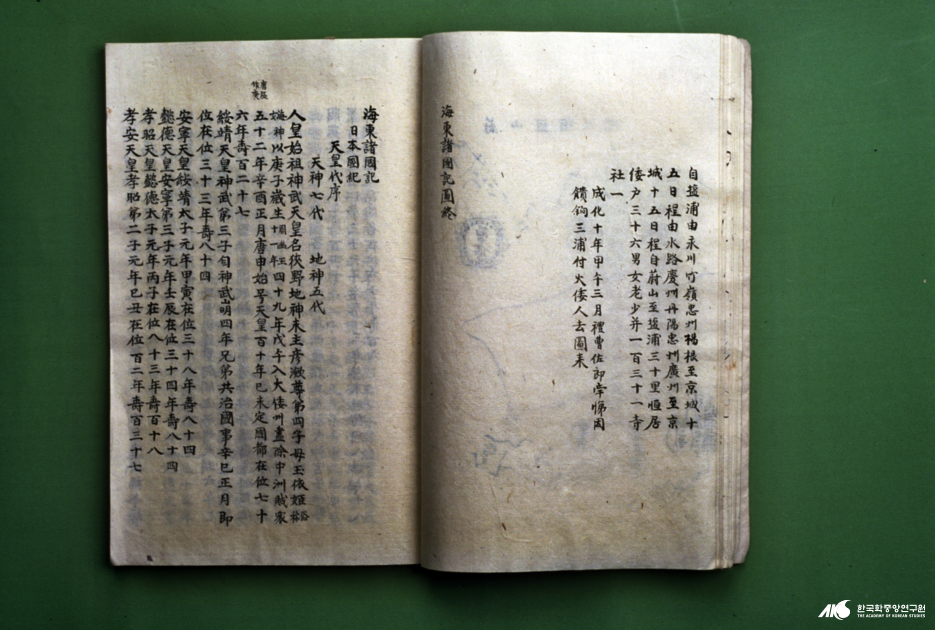 自鹽浦由永川竹嶺忠州楊根至京城十
五日程由水路慶州丹陽忠州廣州至京
城十五日程自蔚山至鹽浦三十里恒居
倭户三十六男女老少并一百三十一寺
社一
成化十年甲午三月禮曹佐郎南悌因
饋餉三浦付火倭人去圖来
海東諸國記圖終
海東諸國記
日本國紀
天皇代序
天神七代 地神五代
人皇始祖神武天皇名狹野地神末主彦瀲尊第四子母玉依姬俗稱
海神以庚子歲生周幽王十一年四十九年戊午入大倭州盡除中洲賊衆
五十二年辛酉正月庚申始号天皇百十年己未定國都在位七十
六年壽百二十七
綏靖天皇神武第三子自神武崩四年兄弟共治國事辛巳正月即
位在位三十三年壽八十四
安寧天皇綏靖太子元年甲寅在位三十八年壽八十四
懿德天皇安寧第三子元年壬辰在位三十四年壽八十四
孝昭天皇懿德太子元年丙子在位八十三年壽百十八
孝安天皇孝昭第二子元年己丑在位百二年壽百三十七
한국학중앙연구원
THE ACADEMY OF KOREAN STUDIES